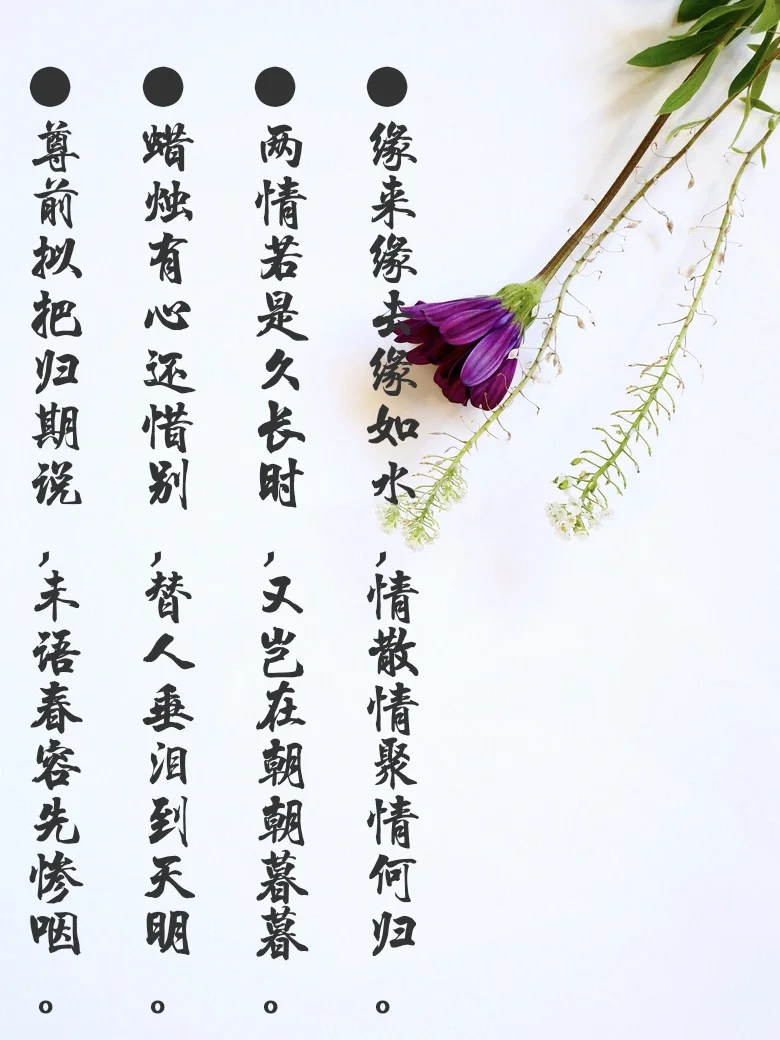 ●缘来缘去缘如水，情散情聚情何归。
●两情若是久长时，又岂在朝朝暮暮。
●蜡烛有心还惜别，替人垂泪到天明。
●尊前拟把归期说，未语春容先惨咽。